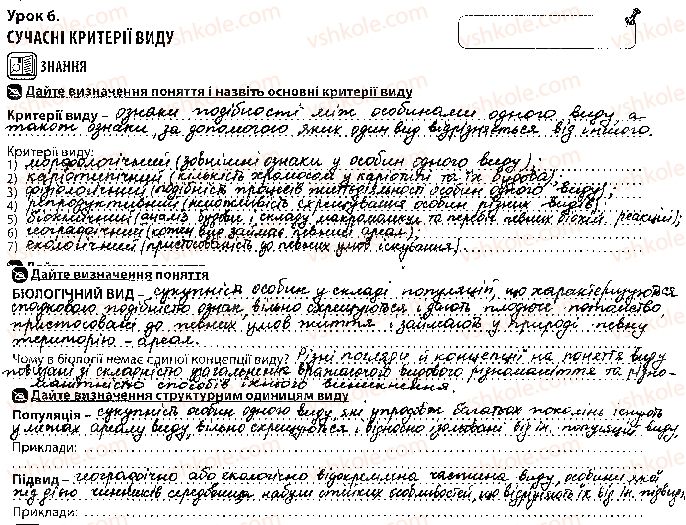 Урок 6.
СУЧАСНІ КРИТЕРІЇ ВИДУ
ЗНАННЯ
Дайте визначення поняття і назвіть основні критерії виду
Критерії виду – ознаки подібності між особинами одного виду, а
також ознаки, за допомогою яких один вид відрізняється від іншого.
Критерії виду:
1) морфологічний (зовнішні ознаки у особин одного виду);
2) каріотипічний (кількість хромосом у каріотипі та їх будова);
3) фізіологічний (подібність процесів життєдіяльності особин одного виду);
4) репродуктивний (неможливість схрещування особин різних видів)
5) біохімічний (аналіз будови і складу макромолекул та перебіг певних біохім. реакцій);
6) географічний (кожен вид займає певний ареал);
7) екологічний (пристосованість до певних умов існування)
Дайте визначення поняття
БІОЛОГІЧНИЙ ВИД – сукупність особин у складі популяцій, що характеризуються
спадковою подібністю ознак, вільно схрещуються і дають плодюче потомство,
пристосовані до певних умов життя і займають у природі певну
територію – ареал.
Чому в біології немає єдиної концепції виду? Різні погляди й концепції на поняття виду
пов'язані зі складністю узагальнення вражаючого видового різноманіття та різно-
манітністю способів їхнього виникнення.
Дайте визначення структурним одиницям виду
Популяція – сукупність особин одного виду, які упродовж багатьох поколінь існують
у межах ареалу виду, вільно схрещуються і відносно ізольовані від ін. популяцій виду,
Приклади:
Підвид – географічно або екологічно відокремлена частина виду, особини якої
під дією чинників середовища набули стійких особливостей, що відрізняють їх від ін. підвидів
Приклади:
vshkole.com